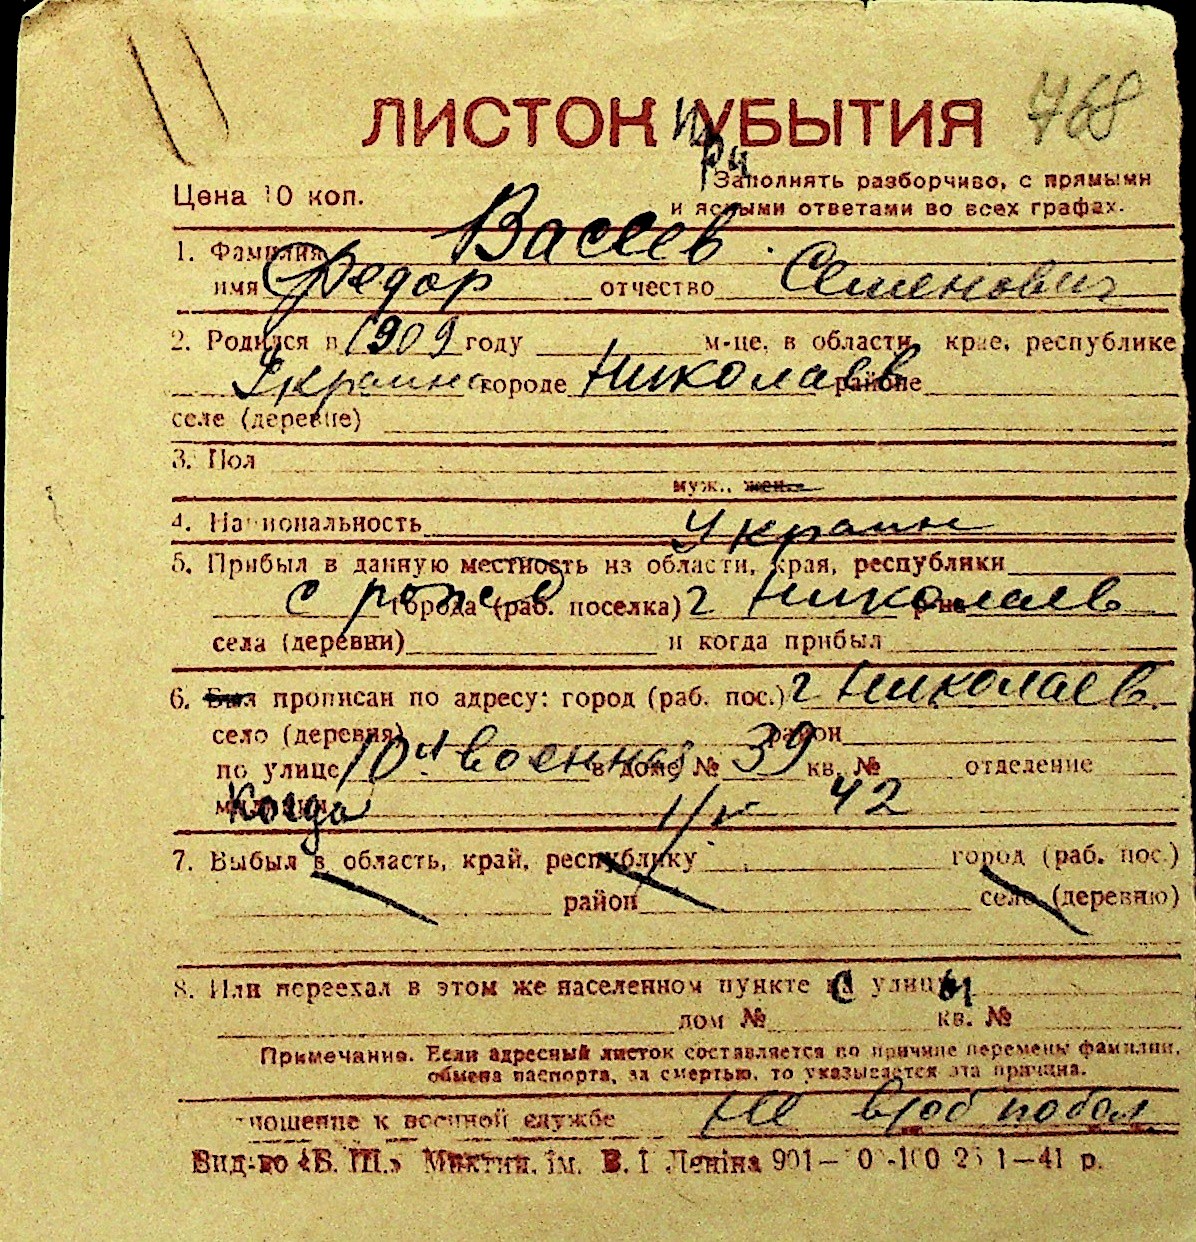 768
ЛИСТОК УБЫТИЯ
при
Цена 10 коп.
Заполнять разборчиво, с прямыми
и ясными ответами во всех графах.
1. Фамилия Васеев
имя Федор отчество Семенович
2. Родился в 1909 году м-це, в области, крае, республике
Украина городе Николаев районе
селе (деревне)
3. Пол
муж., жен.
4. Национальность Украин
5. Прибыл в данную местность из области, края, республики
с города (раб. поселка) г Николаев р-на
села (деревни) и когда прибыл
6. Был прописан по адресу: город (раб. пос.) г Николаев
село (деревня) район
по улице 10 я Военная в доме № 39 кв. № отделение
милиции Когда 42
7. Выбыл в область, край, республику город (раб. пос.)
район село (деревню)
8. Или переехал в этом же населенном пункте с улицы
дом № кв. №
Примечание. Если адресный листок составляется по причине перемены фамилии,
обмена паспорта, за смертью, то указывается эта причина.
ношение к военной службе не
Вид-во «Б. Ш.» Миктип. ім. В. І Леніна 901— 1—41 р.